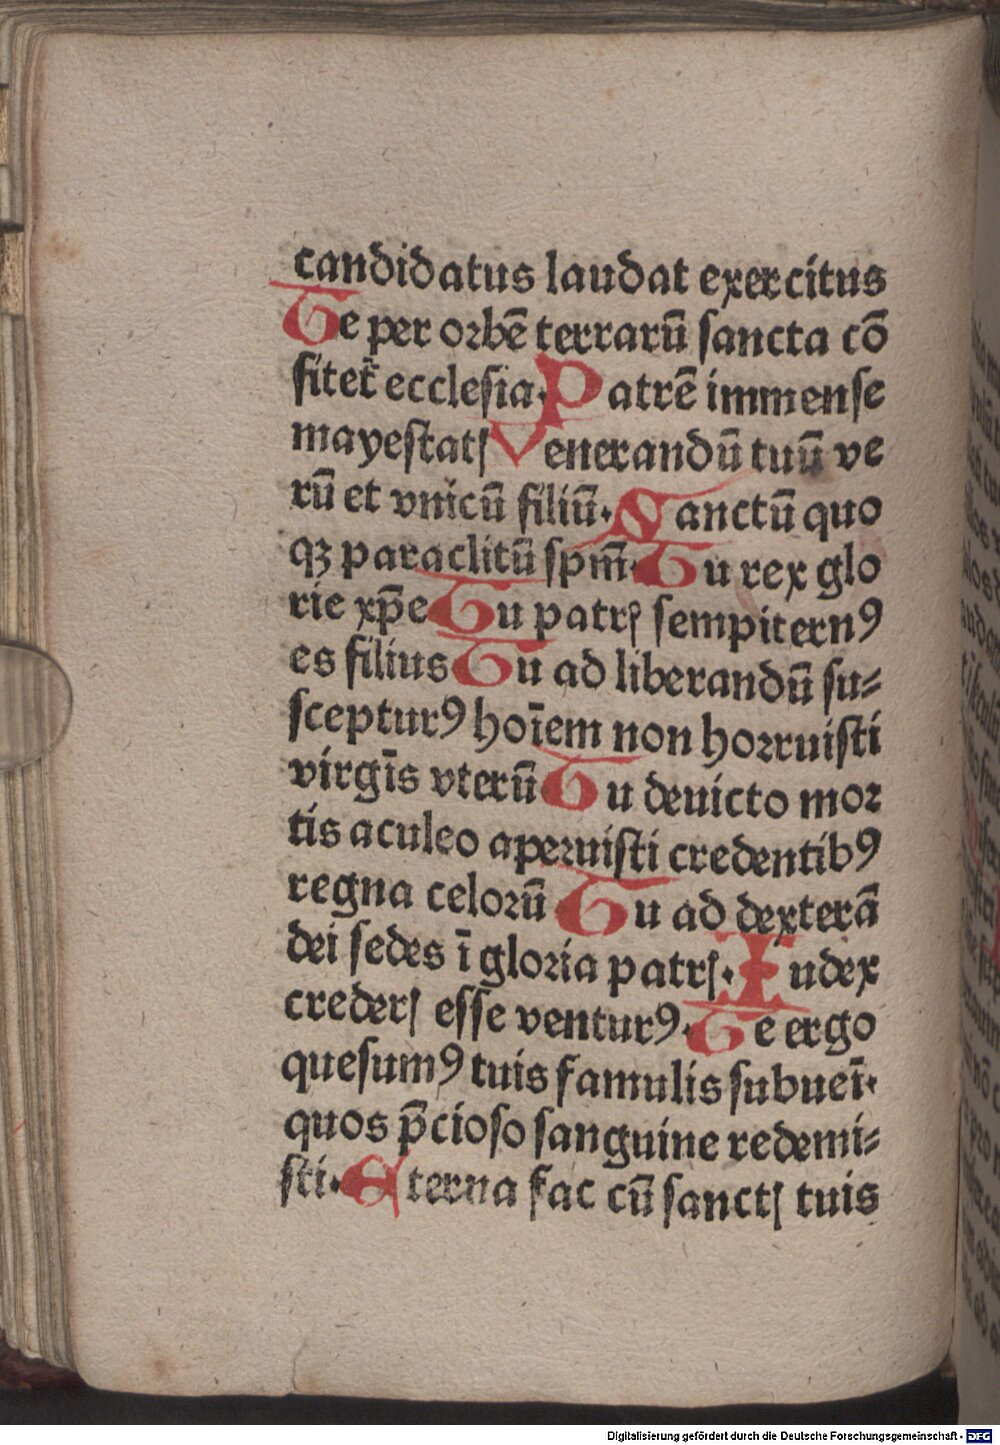 candidatus laudat exercitus
Te per orbē terrarū sancta cō
fitet᷑ ecclesia. Patrē immense
mayestatꝭ Venerandū tuū ve
rū et vnicū filiū. Sanctū quo
qꝫ paraclitū spm̄. Tu rex glo
rie xp̄e Tu patrꝭ sempiternꝰ
es filius Tu ad liberandū su⸗
scepturꝰ hoīem non horruisti
virgīs vterū Tu deuicto mor
tis aculeo aperuisti credentibꝰ
regna celorū Tu ad dexterā
dei sedes ī gloria patrꝭ. Iudex
crederꝭ esse venturꝰ. Te ergo
quesumꝰ tuis famulis subueī.
quos p̄cioso sanguine redemi⸗
sti. Eterna fac cū sanctꝭ tuis
Digitalisierung gefördert durch die Deutsche Forschungsgemeinschaft - DFG